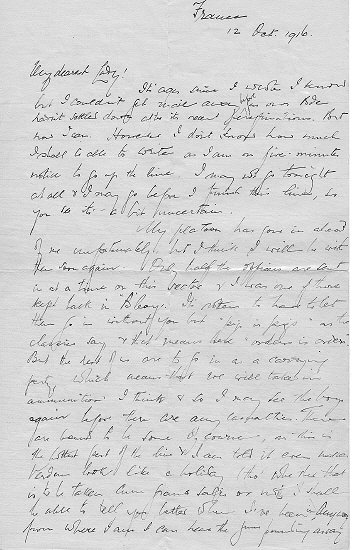 France
12 Oct. 1916.
My dearest
It's ages since I wrote I know
but I couldn't get much away before as our Bde
hasn't settled down after its recent peregrinations. But
now I can. However I don't know how much
I shall be able to write as I am on five-minutes
notice to go up the line. I may not go tonight
at all & I may go before I finish this line, so
you see its a bit uncertain.
My platoon has gone in ahead
of me unfortunately but I think I will be with
them soon again. Only half the officers are sent
in at a time on this sector & I was one of those
kept back in It's rotten to have to let
them go in without you but as the
classics say & that means here orders is orders.
But the rest of us are to go in as a carrying
party, which means that we will take in
ammunition I think & so I may see the boys
again before there are any casualties. There
are bound to be some of course, as this is
the hottest part of the line & I am told it even makes
Verdun look like a holiday tho' whether that
is to be taken cum grano salis or not I shall
be able to tell you better when I've been
from where I am I can hear the guns pounding away